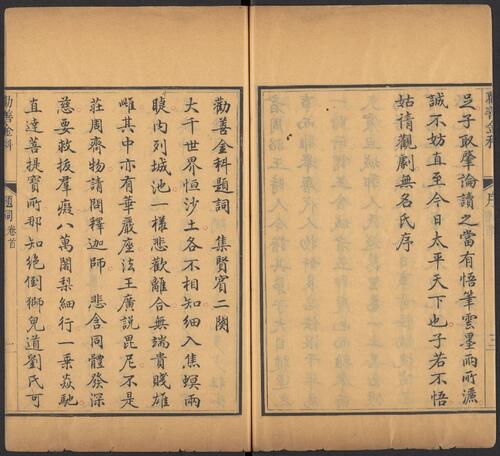 足子取肇論讀之當有悟筆雲墨雨所濺
誠不妨直至今日太平天下也子若不悟
姑情觀劇無名氏序
勸善金科題詞 集賢賓二闋
大千世界恒沙土各不相知細入焦螟兩
睫内列城池一樣悲歡離合無端貴賤雄
雌其中亦有華嚴座法王廣說毘尼不是
莊周齊物請問釋迦師 悲含同體發深
慈要救拔羣癡八萬闍梨細行一乗猋馳
直達菩提寶所那知絶倒獅兒道劉氏可
勸善金科
題詞 卷首
一